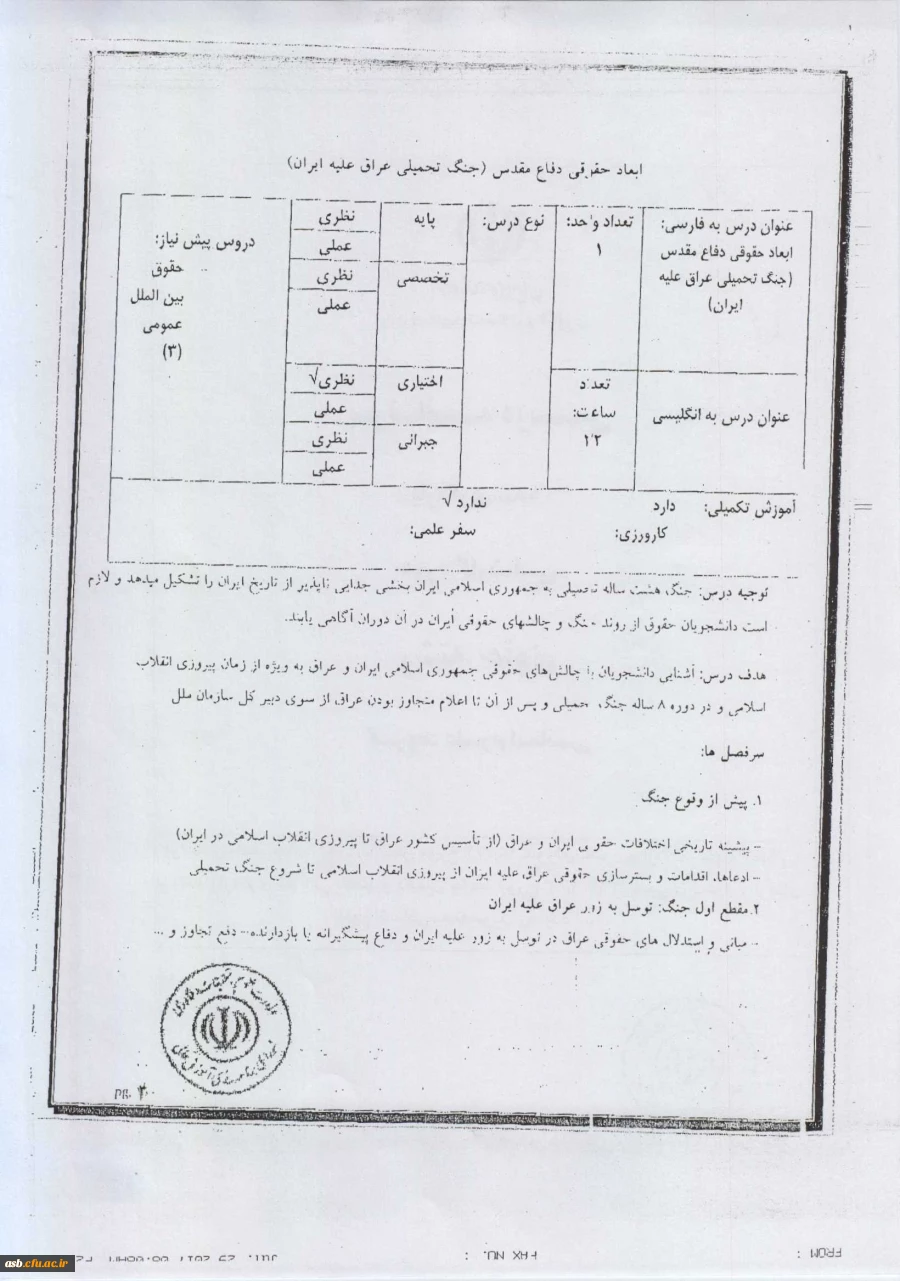 ابعاد حقوقی دفاع مقدس (جنگ تحمیلی عراق علیه ایران)
عنوان درس به فارسی:
ابعاد حقوقی دفاع مقدس
(جنگ تحمیلی عراق علیه
ایران)
تعداد واحد:
۱
نوع درس:
پایه
نظری
عملی
تخصصی
نظری
عملی
دروس پیش نیاز:
حقوق
بین الملل
عمومی
(۳)
عنوان درس به انگلیسی
تعداد
ساعت:
۱۲
اختیاری
نظری√
عملی
جبرانی
نظری
عملی
آموزش تکمیلی: دارد ندارد √
کارورزی: سفر علمی:
توجیه درس: جنگ هشت ساله تحمیلی به جمهوری اسلامی ایران بخشی جدایی ناپذیر از تاریخ ایران را تشکیل میدهد و لازم
است دانشجویان حقوق از روند جنگ و چالشهای حقوقی ایران در آن دوران آگاهی یابند.
هدف درس: آشنایی دانشجویان با چالش‌های حقوقی جمهوری اسلامی ایران و عراق به ویژه از زمان پیروزی انقلاب
اسلامی و در دوره ۸ ساله جنگ تحمیلی و پس از آن تا اعلام متجاوز بودن عراق از سوی دبیر کل سازمان ملل
سرفصل ها:
۱. پیش از وقوع جنگ
- پیشینه تاریخی اختلافات حقوقی ایران و عراق (از تأسیس کشور عراق تا پیروزی انقلاب اسلامی در ایران)
- ادعاها، اقدامات و بسترسازی حقوقی عراق علیه ایران از پیروزی انقلاب اسلامی تا شروع جنگ تحمیلی
۲.مقطع اول جنگ: توسل به زور عراق علیه ایران
- مبانی و استدلال های حقوقی عراق در توسل به زور علیه ایران و دفاع پیشگیرانه یا بازدارنده- دفع تجاوز و ...
وزارت علوم، تحقیقات و فناوری
شورای برنامه ریزی آموزش عالی
FROM :
FAX NO. :
asb.cfu.ac.ir